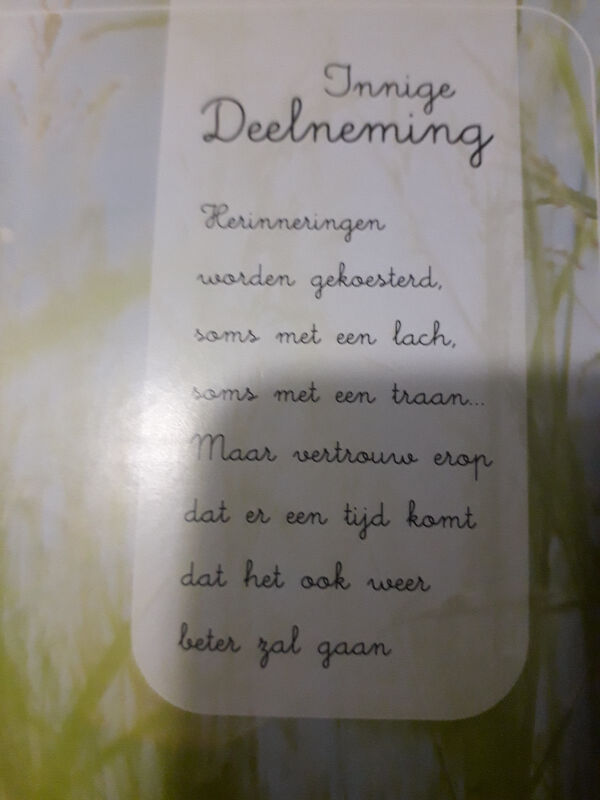 Innige
Deelneming
Herinneringen
worden gekoesterd,
soms met een lach,
soms met een traan...
Maar vertrouw erop
dat er een tijd komt
dat het ook weer
beter zal gaan